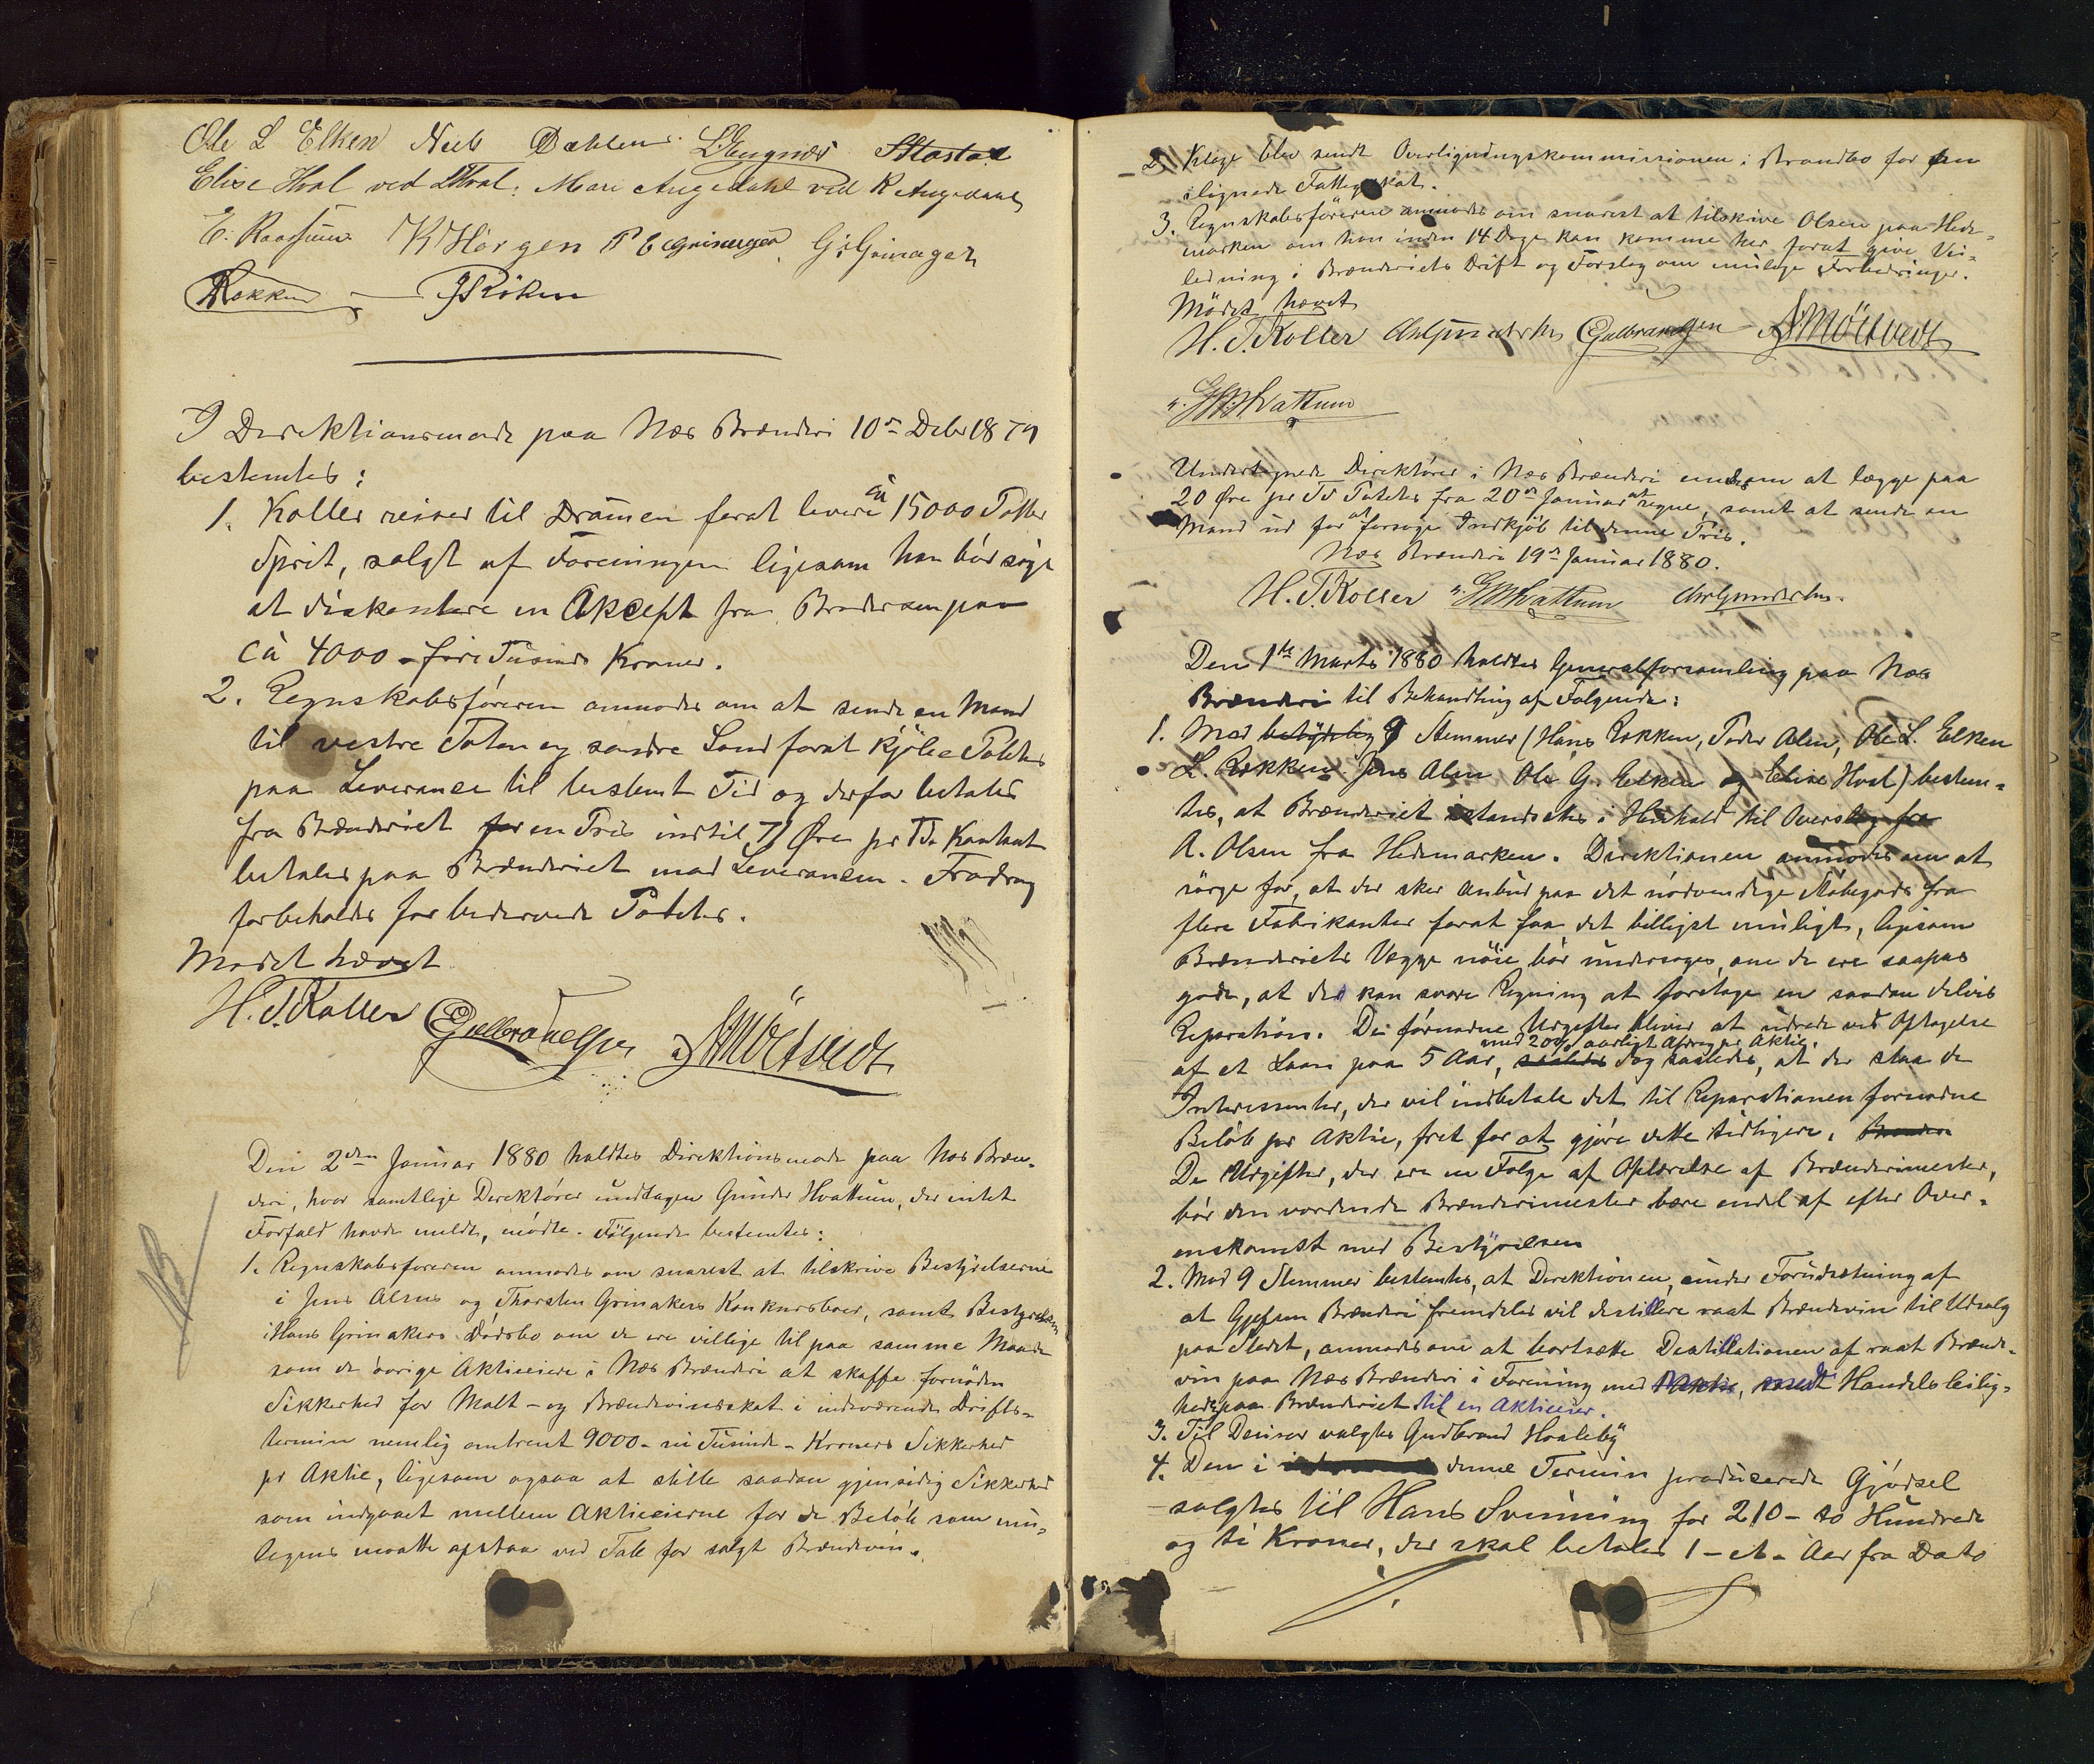 Ole L Elken Niels Dæhlen L Engnæs AHastad
Elise Hval ved LHval. Mari Augedahl ved K Augedahl
E. Raassum K Horgen P E Grinager G. Grinager
Røkken JRöken
I Direktionsmøde paa Næs Brænderi 10de Decbr 1879
bestemtes:
1. Koller reiser til Dramen forat levere ca 15000 Potter
Sprit, solgt af Foreningen ligesom han bör søge
at diskontere en Akcept fra Brodersen paa
cà 4000 - fire Tusinde Kroner.
2. Regnskabsföreren anmodes om at sende en Mand
til vestre Toten og søndre Land forat kjöbe Poteter
paa Leverance til bestemt Tid og derfor betales
fra Brænderiet for en Pris indtil Øre pr Td. Kontant
betales paa Brænderiet mod Leverancen. Fradrag
forbeholdes for bedervede Poteter.
Mødet hævet
H. T. Koller Gulbrandsen AMörtvedt
Den 2den Januar 1880 holdtes Direktionsmøde paa Næs Bræn-
deri, hvor samtlige Direktörer undtagen Gunder Hvattum, der intet
Forfald havde meldt, mødte. Fölgende bestemtes:
1. Regnskabsføreren anmodes om snarest at tilskrive Bestyrelserne
i Jens Alms og Thorsten Grinakers Konkursboer, samt Bestyrelsen
i Hans Grinakers Dödsbo om de ere villige til paa samme Maade
som de övrige Aktieeiere i Næs Brænderi at skaffe fornöden
Sikkerhed for Malt- og Brændevinsskat i indeværende Drifts-
termin nemlig omtrent 9000 - ni Tusinde - Kroners Sikkerhed
pr Aktie, ligesom ogsaa at stille saadan gjensidig Sikkerhed
som indgaaet mellem Aktieeierne for de Beløb som mu-
ligens maatte opstaa ved Tab for solgt Brændevin.
2. Klage blev sendt Overligningskommissionen i Brandbo for den
ilignede Fattigskat.
3. Regnskabsföreren anmodes om snarest at tilskrive Olsen paa Hede-
marken om han inden 14 Dage kan komme her forat give Vei-
ledning i Brænderiets Drift og Forslag om mulige Forbedringer.
Mödet hævet
H. T. Koller Chr Gundersen Gulbrandsen AMörtvedt
G Hvattum
Undertegnede Direktörer i Næs Brænderi enedes om at lægge paa
20 Øre pr Td Poteter fra 20de Januar at regne, samt at sende en
Mand ud for at forsøge Indkjöb til denne Pris.
Næs Brænderi 19de Januar 1880.
H. T. Koller G Hvattum Chr Gundersen.
Den 1ste Marts 1880 holdtes Generalforsamling paa Næs
Brænderi til Behandling af Følgende:
1. Mod betydelig 9 Stemmer (Hans Røkken, Peder Alm, Ole L. Elken
L. Røkken Jens Alm Ole G. Elken og Elise Hval) bestem-
tes, at Brænderiet istandsættes i Henhold til Overslag fra
A. Olsen fra Hedemarken. Direktionen anmodes om at
sörge for, at der sker Anbud paa det nödvendige Støbegods fra
flere Fabrikanter forat faa det billigst muligt, ligesom
Brænderiets Vægge nöie bör undersøges, om de ere saapas
gode, at det kan svare Regning at foretage en saadan delvis
Reparation. De fornødne Udgifter bliver at udrede ved Optagelse
med 20% aarligt Afdrag pr Aktie.
af et Laan paa 5 Aar, dog saaledes, at der staar de
Interessenter, der vil indbetale det til Reparationen fornødne
Beløb pr Aktie, frit for at gjöre dette tidligere.
De Udgifter, der ere en Følge af Oplærelse af Brænderimester,
bör den vordende Brænderimester bære endel af efter Over-
enskomst med Bestyrelsen
2. Mod 9 Stemmer bestemtes, at Direktionen, under Forudsætning af
at Gjefsen Brænderi fremdeles vil destillere raat Brændevin til Udsalg
paa Stedet, anmodes om at bortsætte Destillationen af raat Brænde-
vin paa Næs Brænderi i Forening med Handelsleilig-
hed paa Brænderiet til en Aktieeier.
3. Til Revisor valgtes Gudbrand Hvaleby
4. Den i denne Termin producerede Gjödsel
solgtes til Hans Svinning for 210 - to Hundrede
og ti Kroner, der skal betales 1 - et - Aar fra Dato